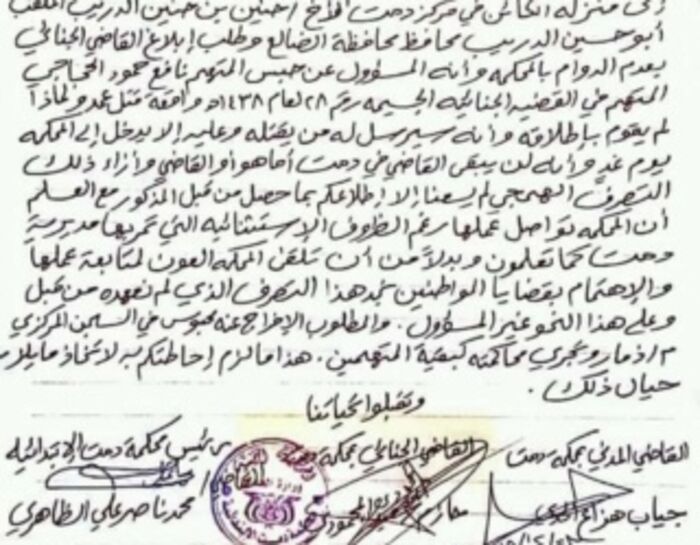 إلى منزله الكائن في مركز دمت افراح / حنين بن حنين الدريب الملقب
أبو حسين الدريب محافظ محافظة الضالع وطلب إبلاغ القاضي الجنائي
بعدم الدوام بالمحكمة وأنه المسؤول عن حبس المتهم نافع حمود الحجاجي
المتهم في القضية الجنائية الجسيمة رقم ٢٨ لعام ١٤٣٨هـ واقعة قتل عمد ولماذا
لم يقوم بإطلاقه وأنه سيرسل له من يقتله وعليه إلا يدخل إلى المحكمة
يوم غدٍ وأنه لن يبقى القاضي في دمت أما هو أو القاضي وأزاء ذلك
التصرف الهمجي لم يسعنا إلا إطلاعكم بما حصل من قبل المذكور مع العلم
أن المحكمة تواصل عملها رغم الظروف الإستثنائية التي تمر بها مديرية
دمت كما تعلمون وبدلاً من أن تلقى المحكمة العون لمتابعة عملها
والإهتمام بقضايا المواطنين نجد هذا التصرف الذي لم نعهده من قبل
وعلى هذا النحو غير المسؤول . والمطلوب الإفراج عنه محبوس في السجن المركزي
م/ ذمار وتجري محاكمته كبقية المتهمين . هذا ما لزم إحاطتكم به لاتخاذ ما يلزم
حيال ذلك .
وتقبلوا تحياتنا
القاضي المدني بمحكمة دمت القاضي الجنائي بمحكمة دمت رئيس محكمة دمت الإبتدائية
القاضي /
جياب هزاع محمد ناصر علي الظاهري